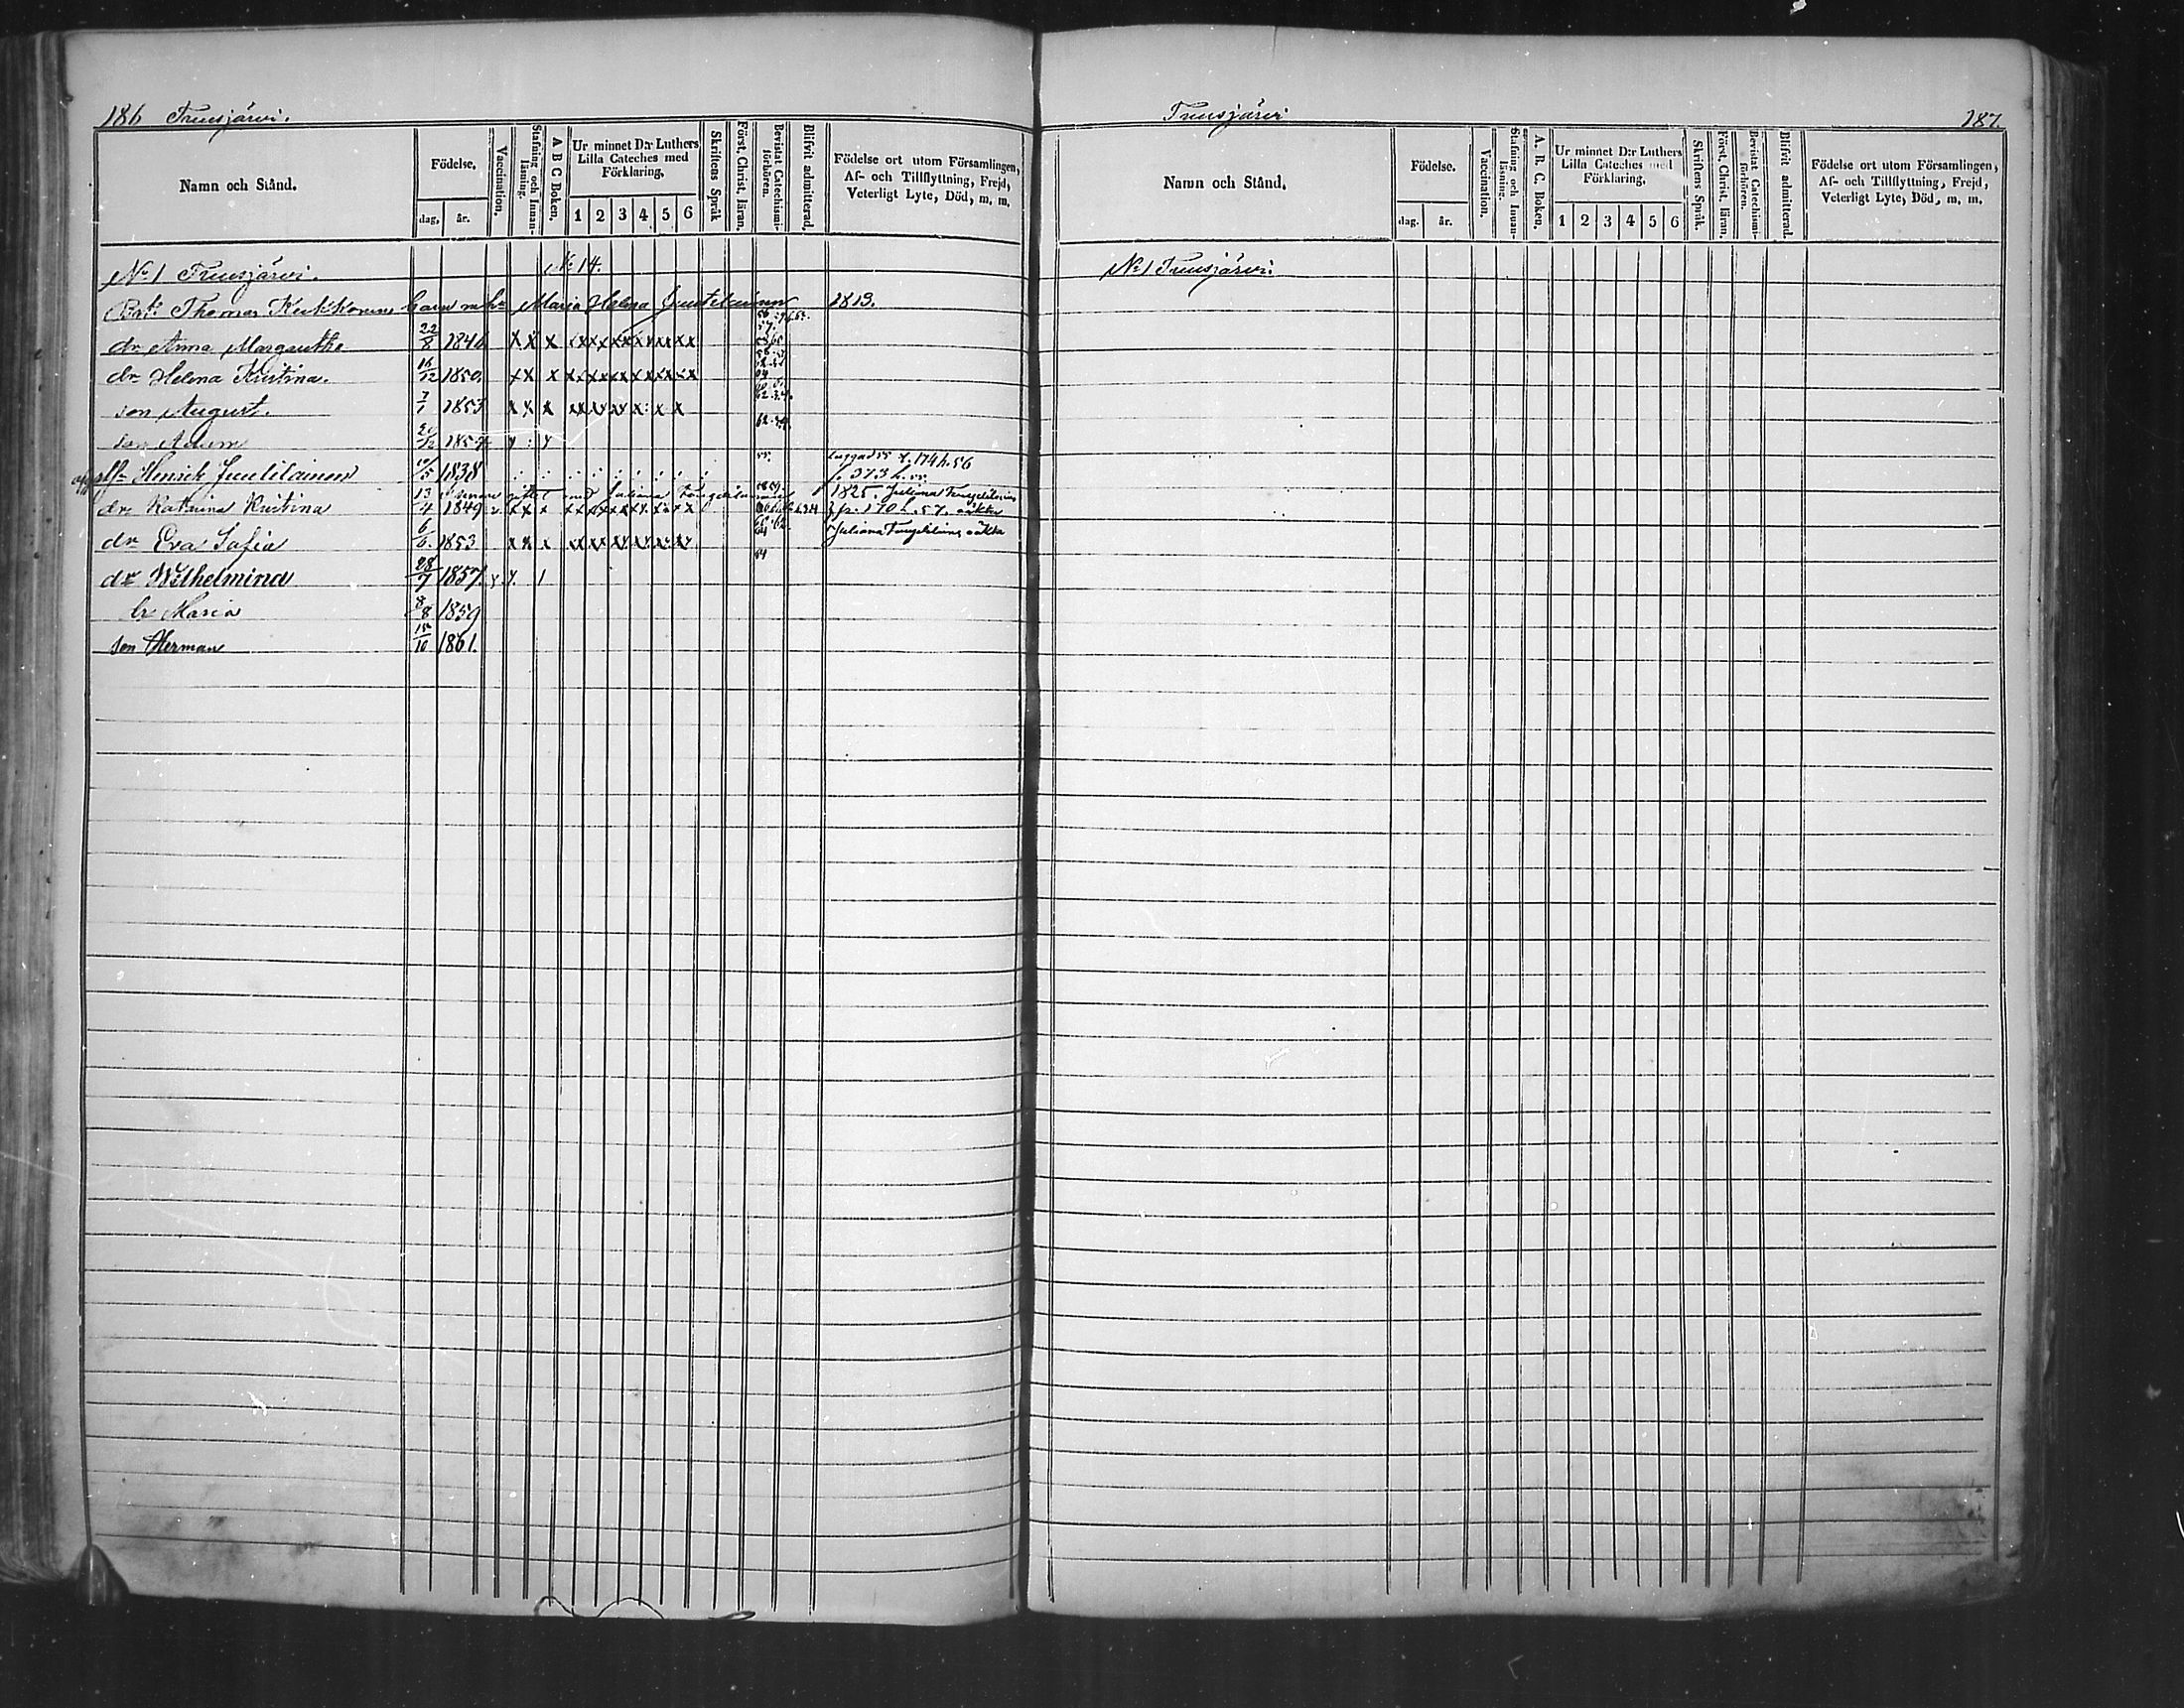 186 Truusjärvi.
Namn och Stånd.
Födelse.
dag, år.
Vaccination.
Stafning och Innan-läsning.
A B C Boken.
Ur minnet D:r Luthers Lilla Cateches med Förklaring.
1 2 3 4 5 6
Skriftens Språk
Först, Christ, läran.
Bevistat Catechismi-förhören.
Blifvit admitterad.
Födelse ort utom Församlingen, Af- och Tillflyttning, Frejd, Veterligt Lyte, Död, m. m.
No 1 Truusjärvi. No 14.
Thomas Kukkonens barn m hu Maria Helena Juutilainen 1813.
dr Anna Margaretha 22/8 1846 x x x x x x x x x x
dr Helena Kristina. 16/12 1850. x x x x x x x x x x
son August. 7/1 1853 x x x x x x x x x
son Adam 1857
Henrik Juutilainen 10/5 1838 f. 174 h. 56
f. 373 h.
1825. Juliana
dr Katarina Kristina 13/4 1849 x x x x x x x x x p. 170 h. 57. oäkta
dr Eva Sofia 6/6 1853 x x x x x x x x Juliana oäkta
dr Wilhelmina 28/7 1857
dr Maria 8/8 1859
son Herman 15/10 1861.
Truusjärvi 187.
Namn och Stånd.
Födelse.
dag. år.
Vaccination.
Stafning och Innan-läsning.
A. B. C. Boken.
Ur minnet D:r Luthers Lilla Cateches med Förklaring.
1 2 3 4 5 6
Skriftens Språk.
Först, Christ, läran.
Bevistat Catechismi-förhören.
Blifvit admitterad.
Födelse ort utom Församlingen, Af- och Tillflyttning, Frejd, Veterligt Lyte, Död, m. m.
No 1 Truusjärvi.